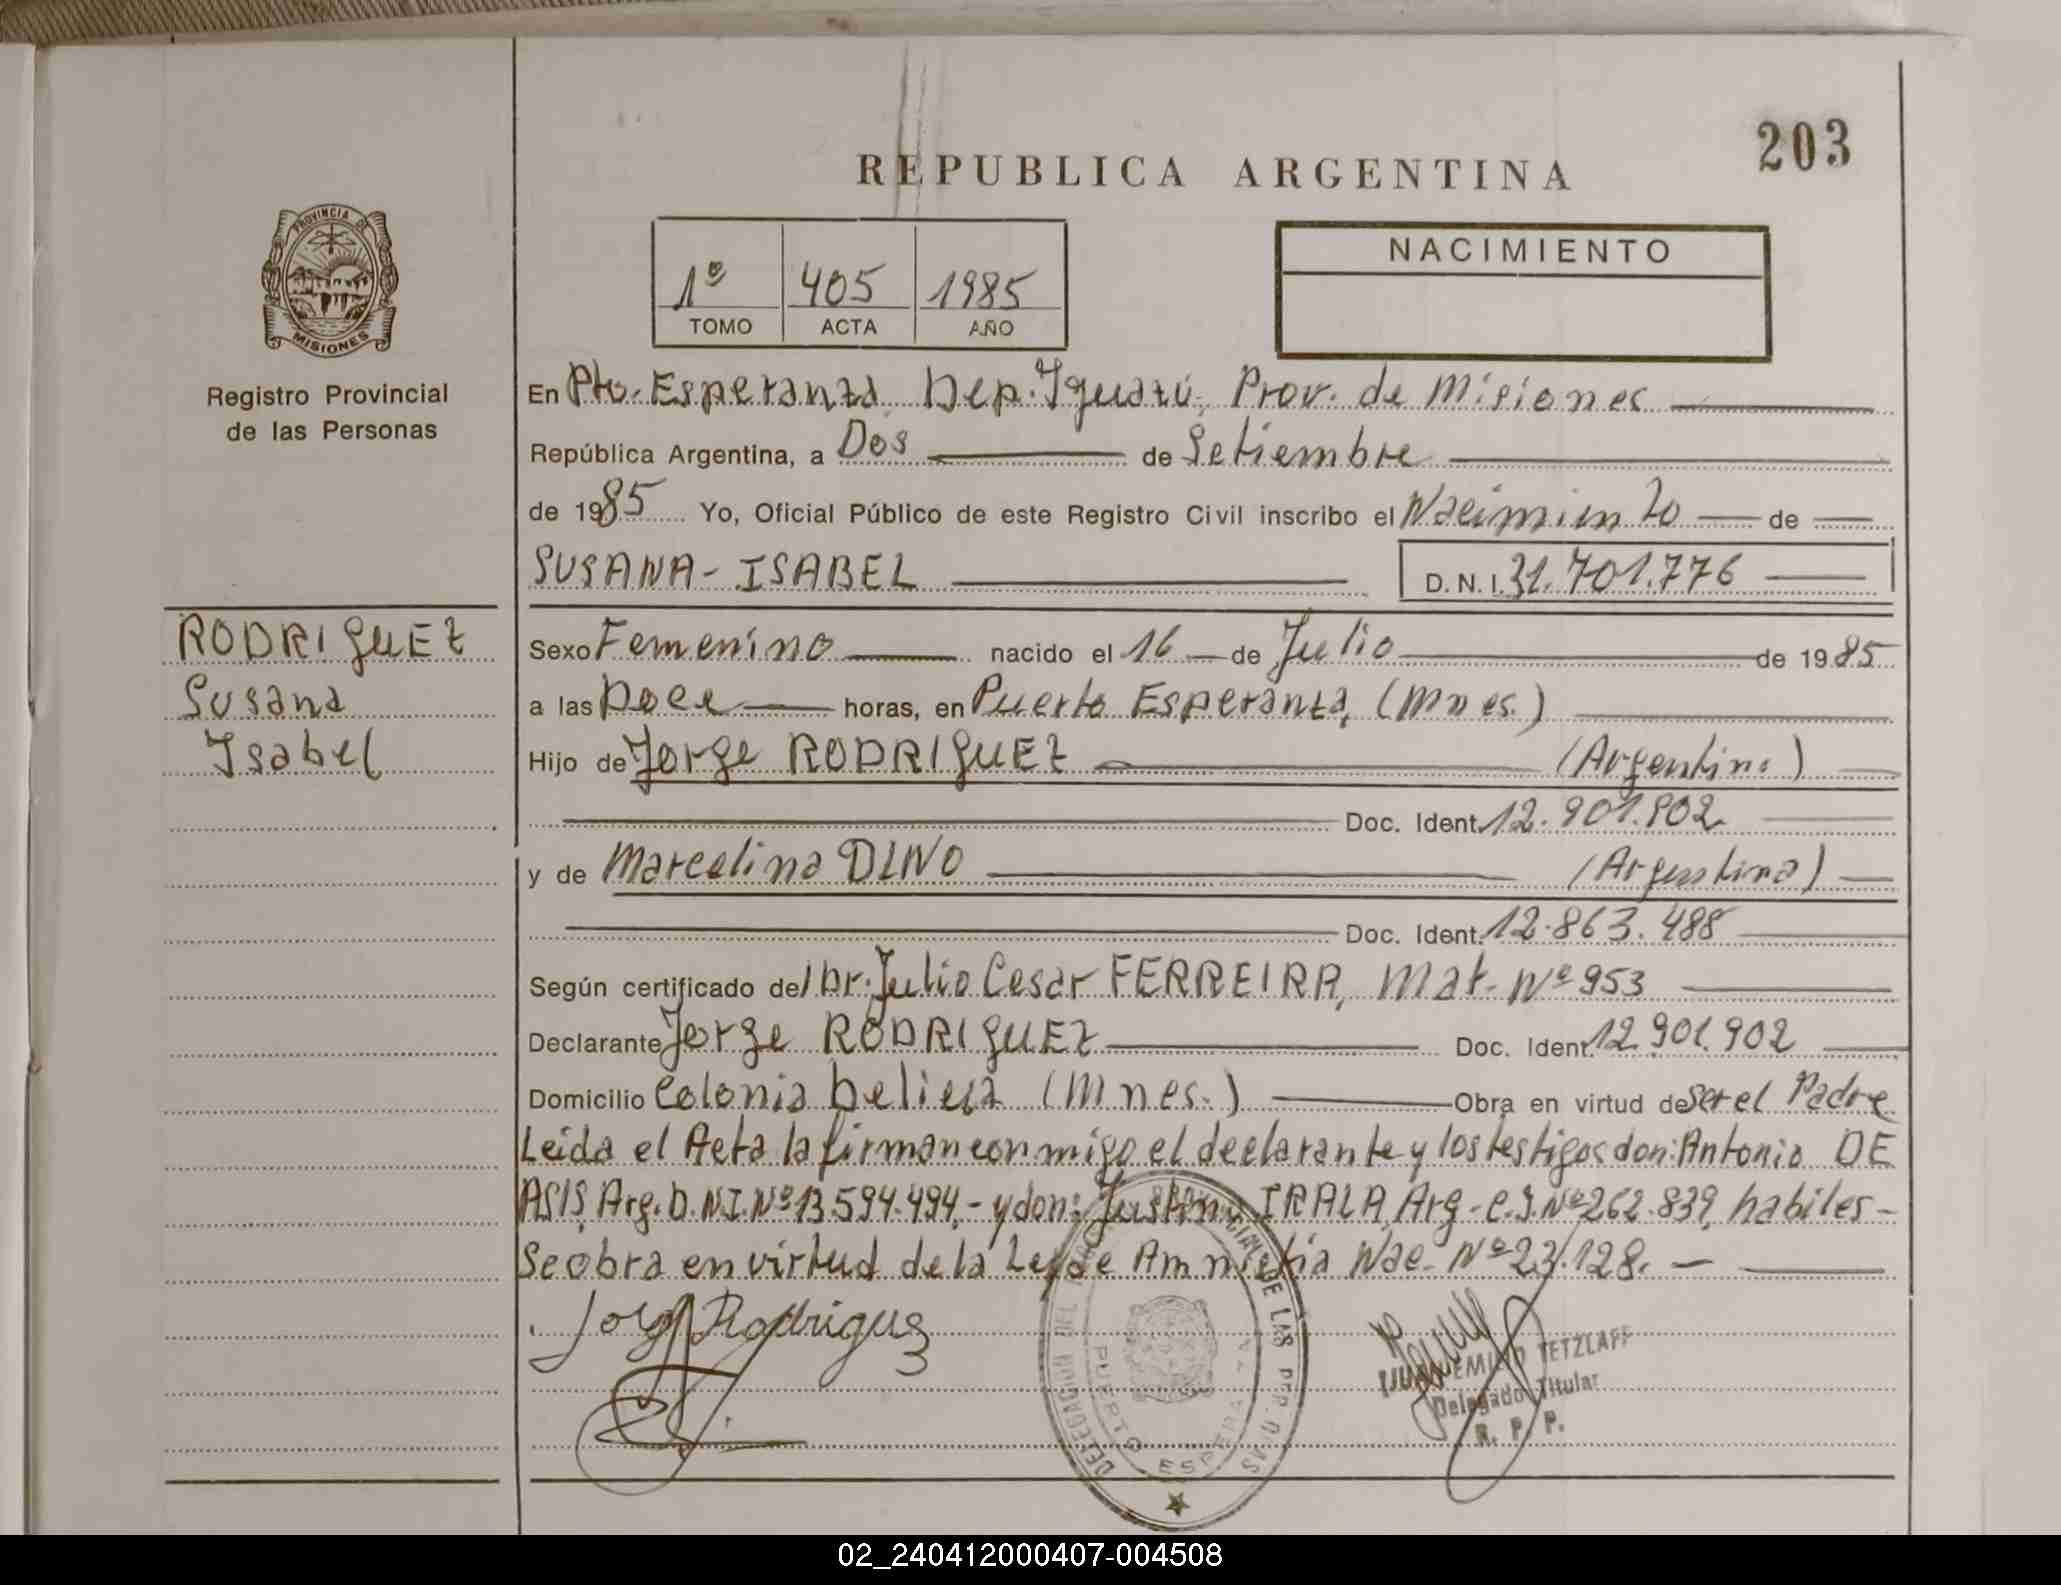 203
REPUBLICA ARGENTINA
PROVINCIA DE
MISIONES
Registro Provincial
de las Personas
1º 405 1985
TOMO ACTA AÑO
NACIMIENTO
En Pto. Esperanza, Dep. Iguazú, Prov. de Misiones
República Argentina, a Dos de Setiembre
de 1985 Yo, Oficial Público de este Registro Civil inscribo el Nacimiento de
SUSANA-ISABEL D.N.I. 31.701.776
RODRIGUEZ
Susana
Isabel
Sexo Femenino nacido el 16 de Julio de 1985
a las Doce horas, en Puerto Esperanza, (Mnes.)
Hijo de Jorge RODRIGUEZ (Argentino)
Doc. Ident. 12.901.902
y de Marcelina DINO (Argentina)
Doc. Ident. 12.863.488
Según certificado del Dr. Julio Cesar FERREIRA, Mat. Nº 953
Declarante Jorge RODRIGUEZ Doc. Ident. 12.901.902
Domicilio Colonia Delicia (Mnes.) Obra en virtud de ser el Padre
Leida el Acta la firman conmigo el declarante y los testigos don: Antonio DE
ASIS, Arg. D.N.I. Nº 13.594.494.- y don: Justino IRALA, Arg. C.I. Nº 262.839, habiles-
Se obra en virtud de la Ley de Amnistia Nac. Nº 23.128.-
Jorge Rodriguez
DELEGACION DEL REGISTRO PROVINCIAL DE LAS PERSONAS
PUERTO ESPERANZA
EMILIO TETZLAFF
Delegado Titular
R. P. P.
02_240412000407-004508